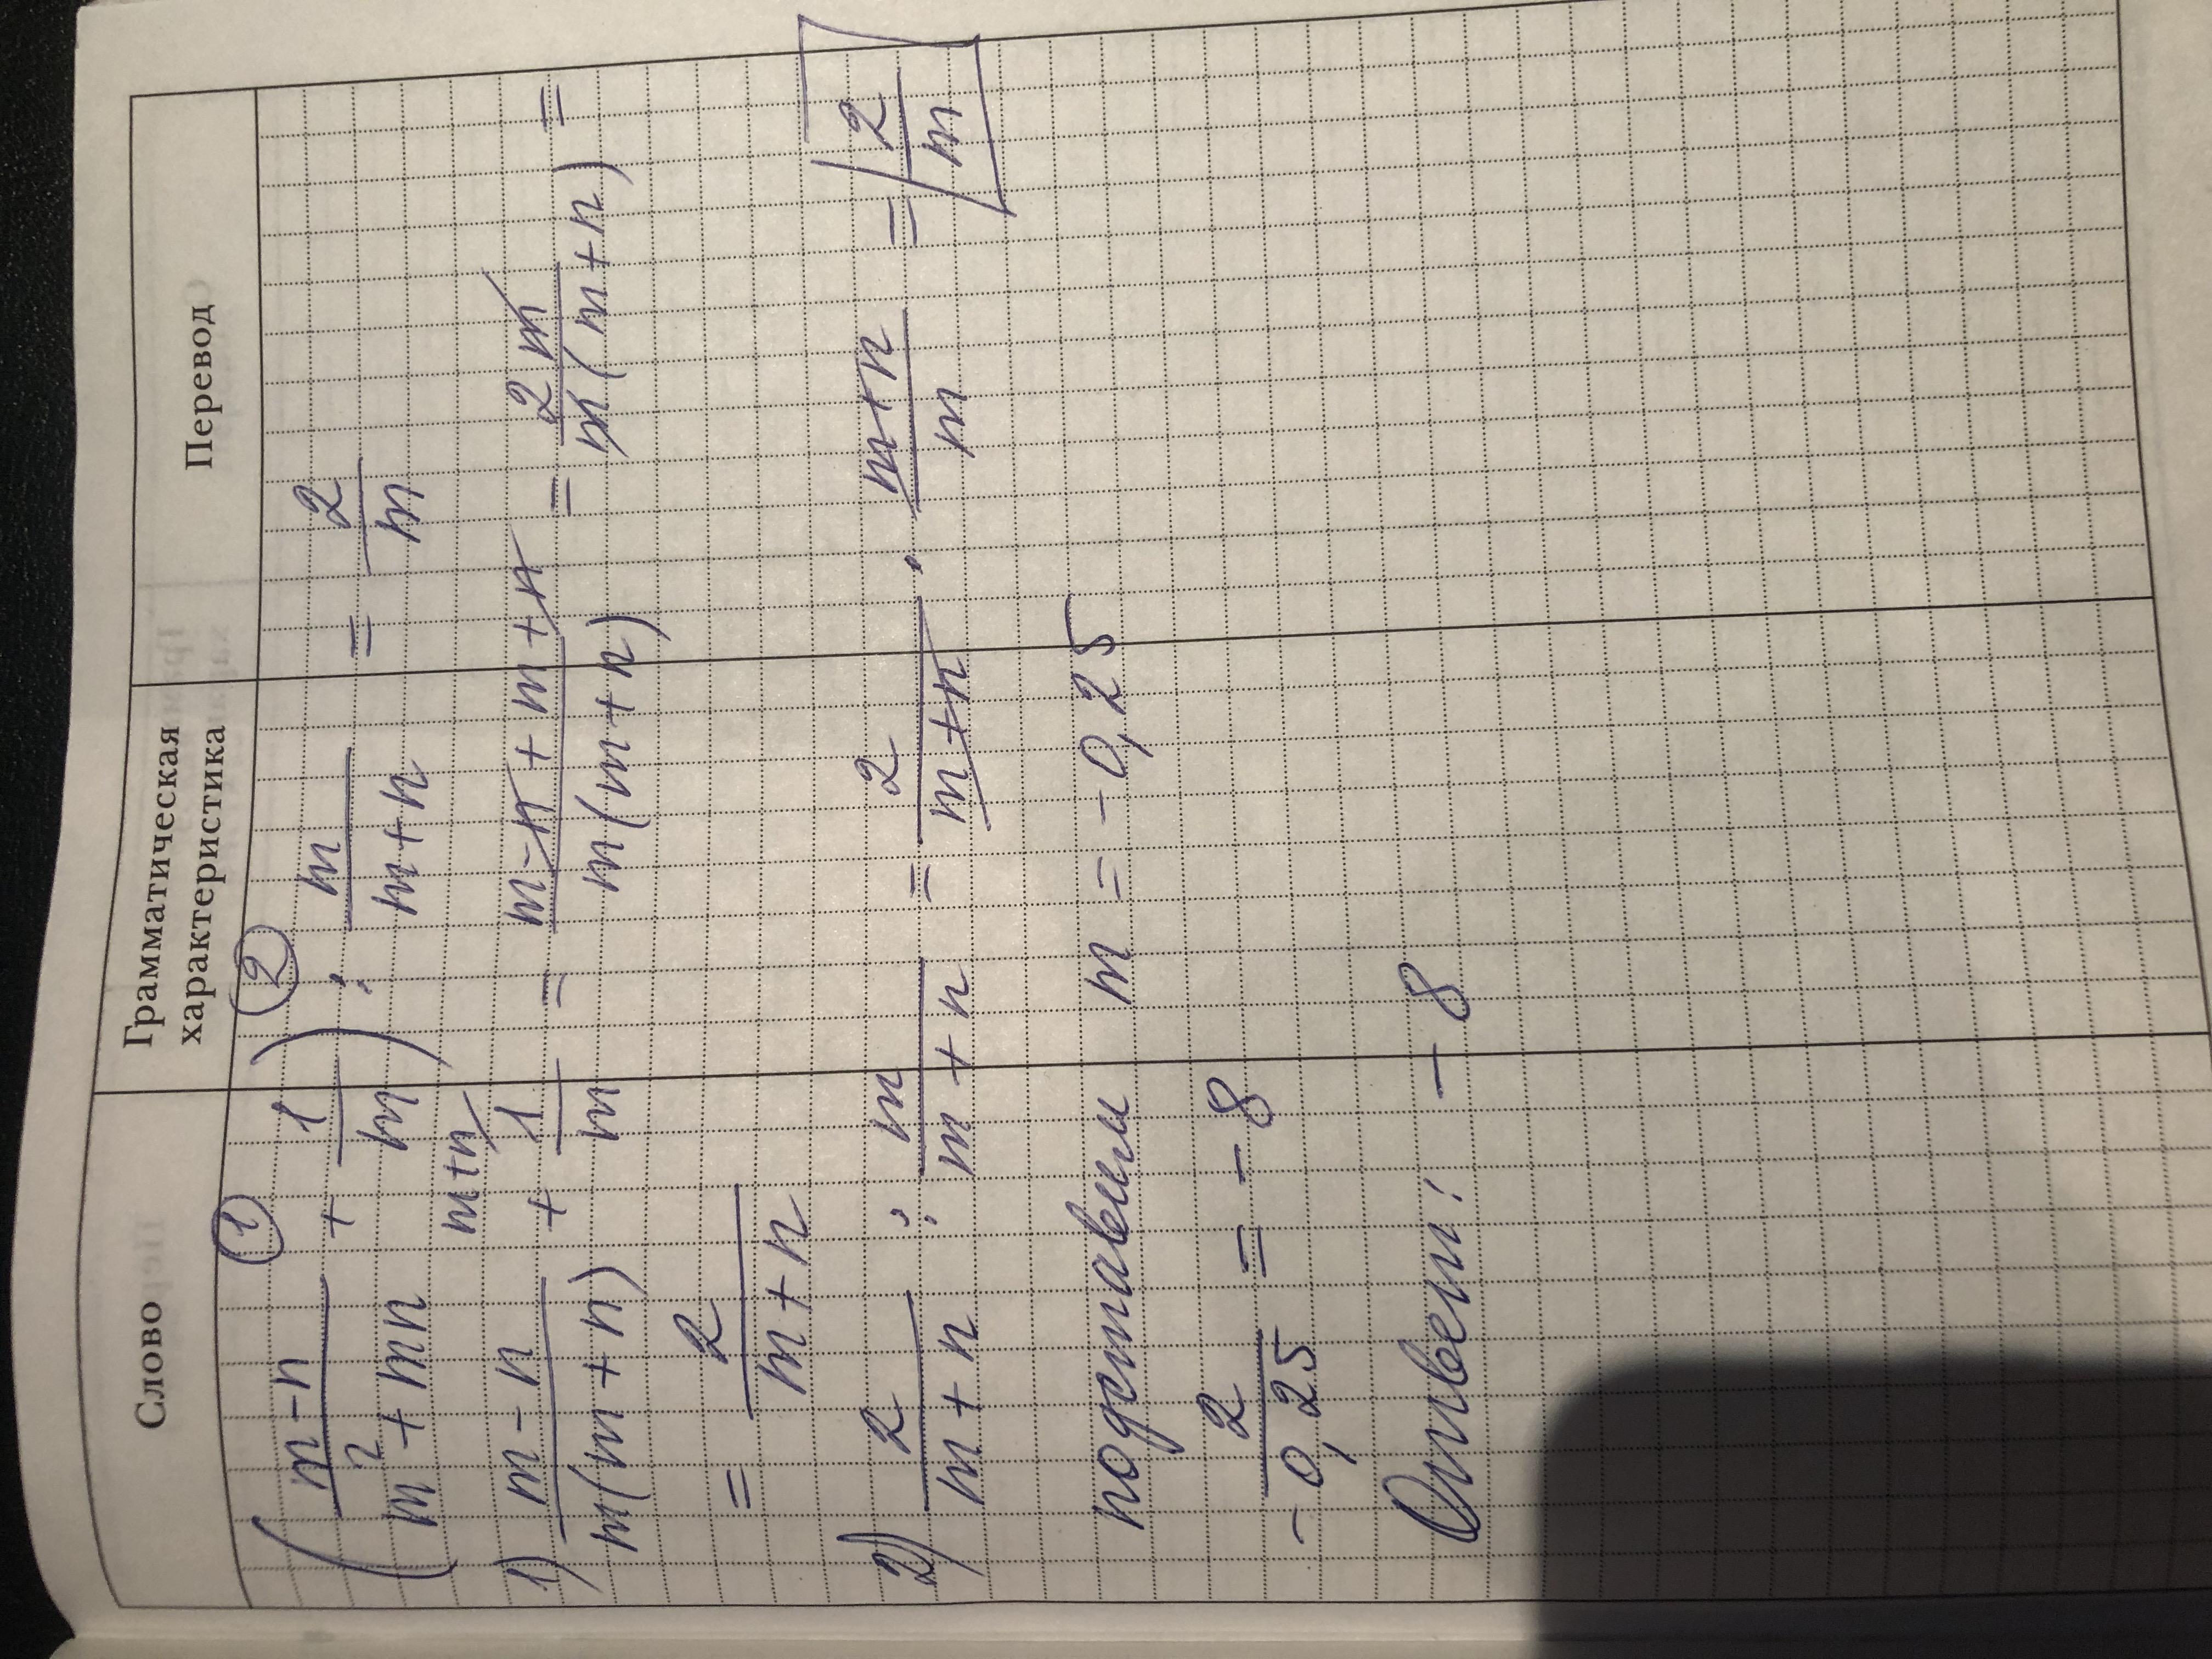 Слово Грамматическая характеристика Перевод
① ②
( (m-n)/(m²+mn) + 1/m ) : m/(m+n) = 2/m
1) (m-n)/(m(m+n)) + 1/m ^(m+n) = (m-n+m+n)/(m(m+n)) = 2m/(m(m+n)) =
= 2/(m+n)
2) 2/(m+n) : m/(m+n) = 2/(m+n) · (m+n)/m = 2/m
подставим m = -0,25
2/-0,25 = -8
Ответ: -8